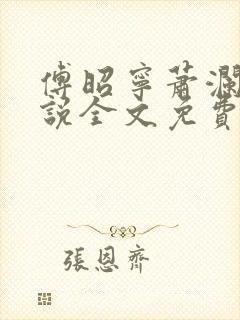 傅昭寧蕭瀾
說全文免費
張恩齊